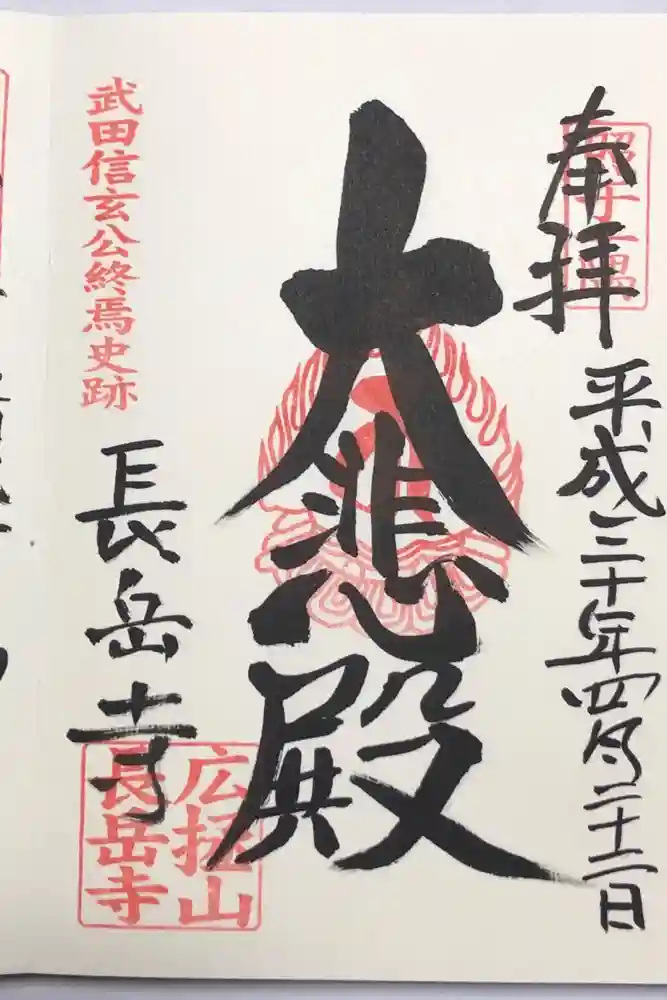 奉拝
平成三十年四月二十二日
大悲殿
武田信玄公終焉史跡
長岳寺
広拯山
長岳寺